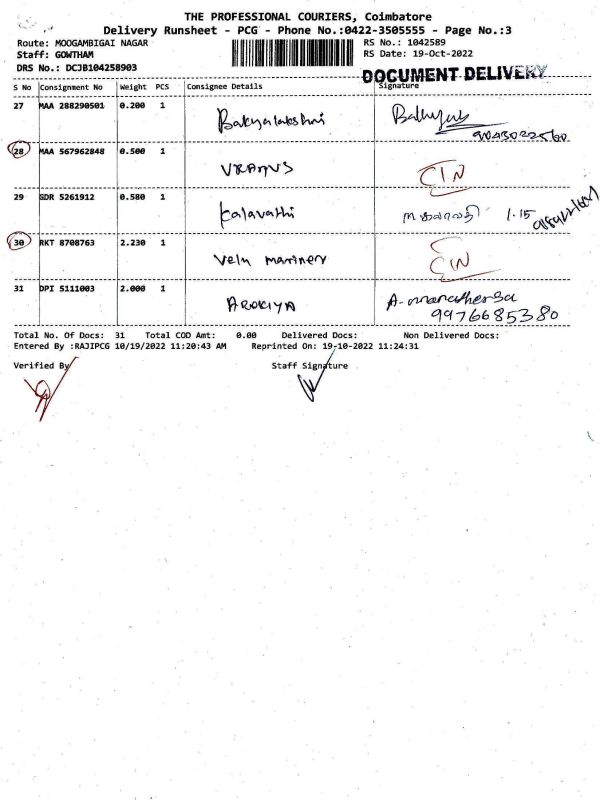 THE PROFESSIONAL COURIERS, Coimbatore
Delivery Runsheet - PCG - Phone No.:0422-3505555 - Page No.:3
Route: MOOGAMBIGAI NAGAR RS No.: 1042589
Staff: GOWTHAM RS Date: 19-Oct-2022
DRS No.: DCJB104258903
DOCUMENT DELIVERY
S No Consignment No Weight PCS Consignee Details Signature
27 MAA 288290501 0.200 1 Bakyalakshmi
28 MAA 567962848 0.500 1
29 GDR 5261912 0.580 1 Kalavathi 1.15
30 RKT 8708763 2.230 1 Velu
31 DPI 5111003 2.000 1 AROKIYA
9976685380
Total No. Of Docs: 31 Total COD Amt: 0.00 Delivered Docs: Non Delivered Docs:
Entered By :RAJIPCG 10/19/2022 11:20:43 AM Reprinted On: 19-10-2022 11:24:31
Verified By Staff Signature